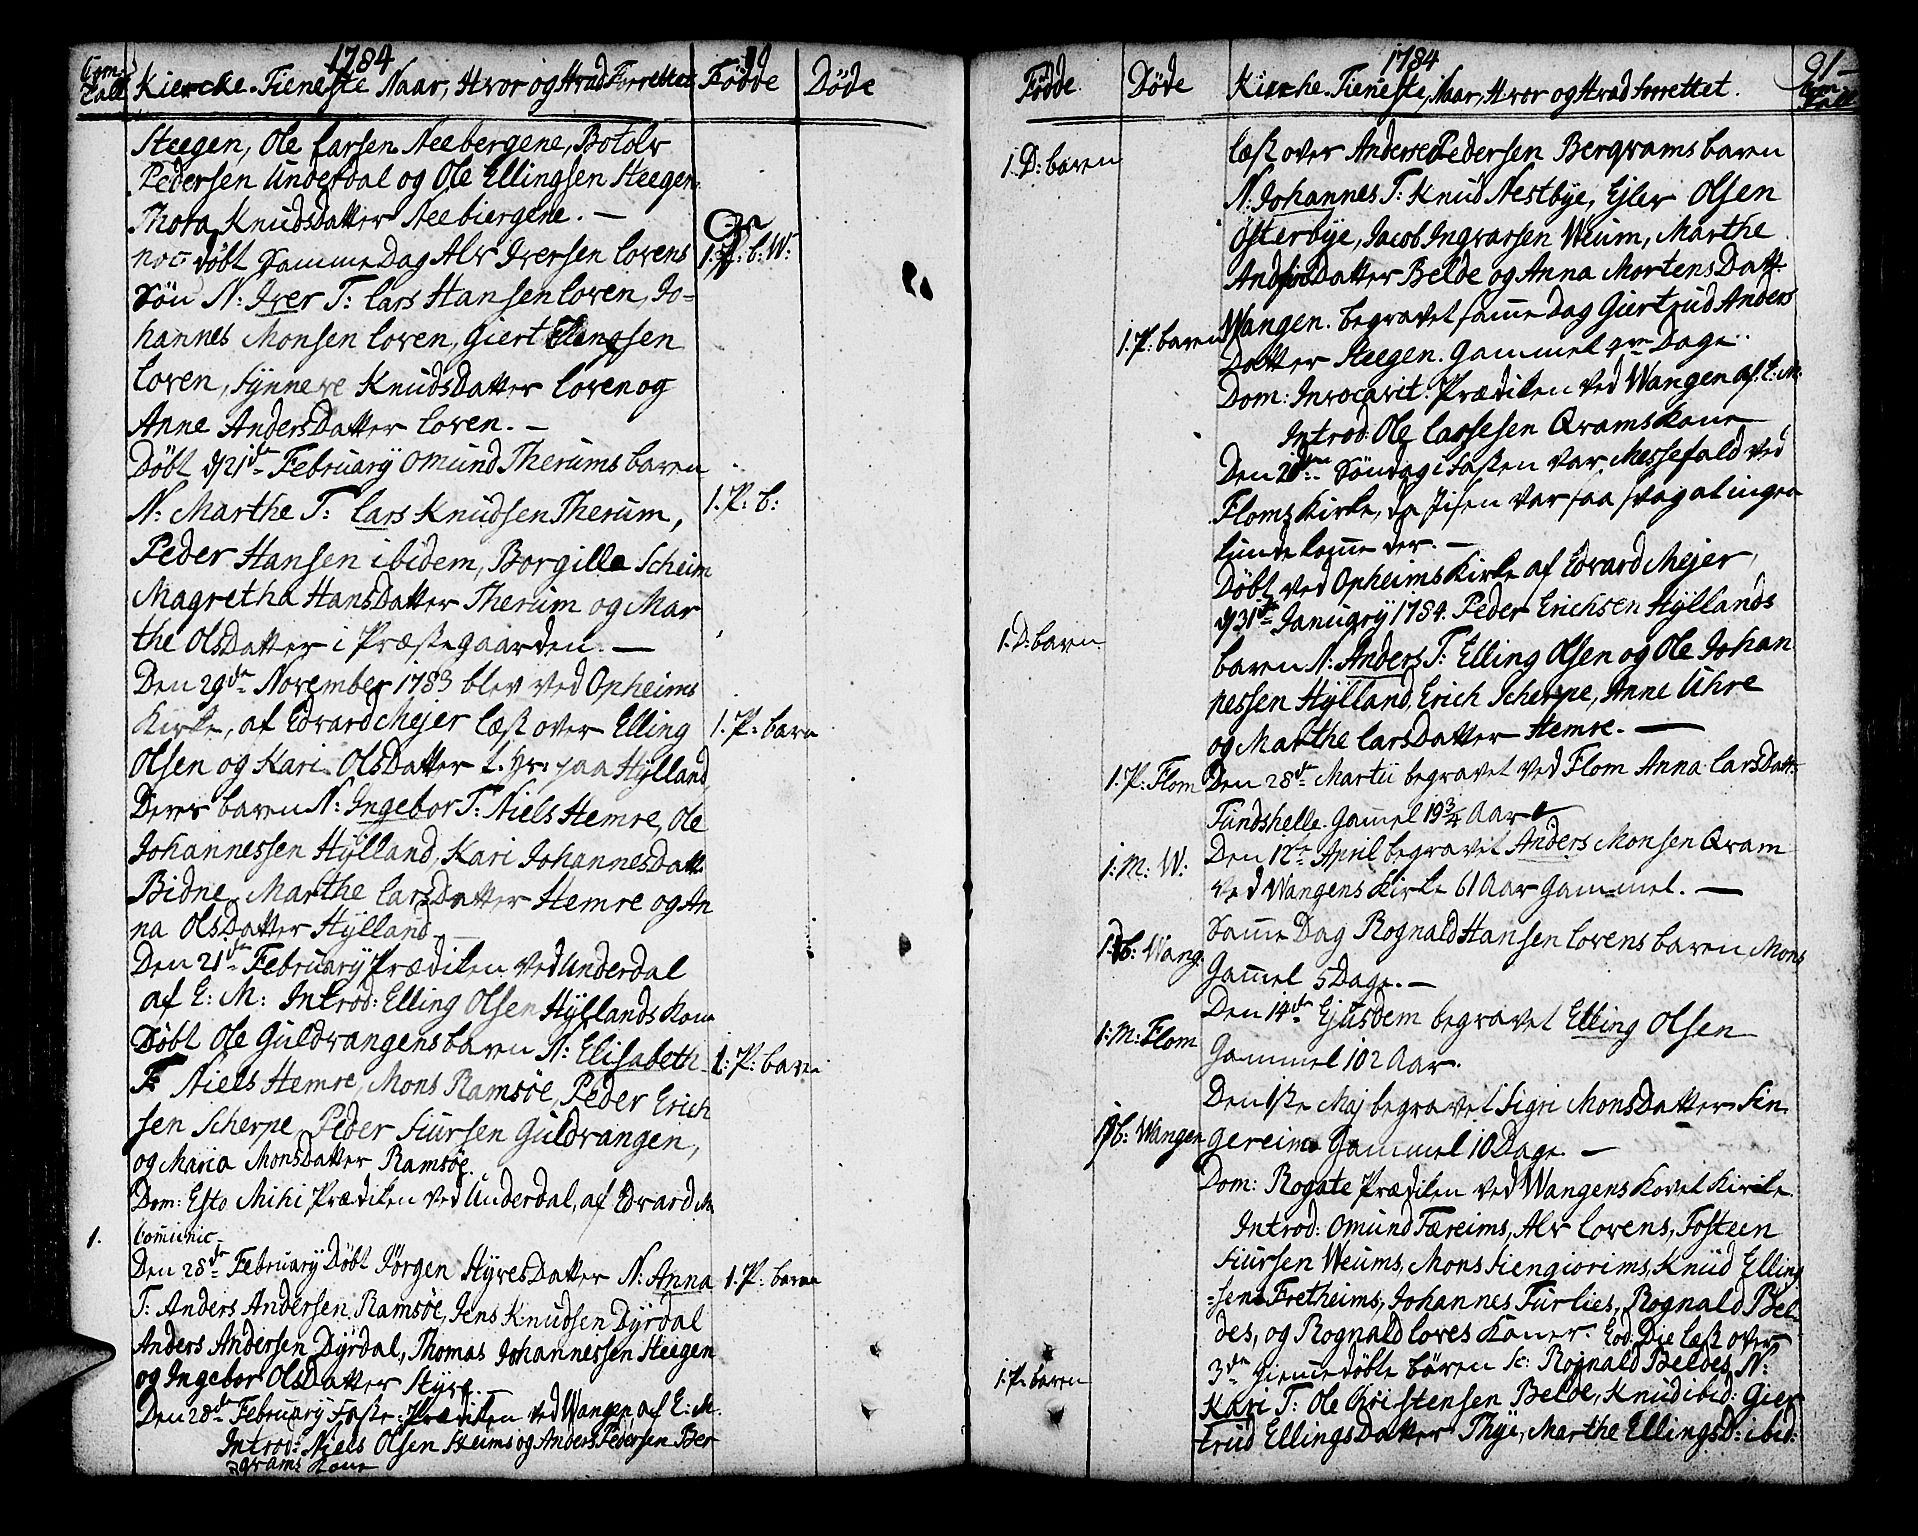 1784
Com: Tall
Kiercke-Tieneste Naar, Hvor og Hvad Forrettet
Fødde
Døde
Steegen, Ole Larsen Neebergene, Botolv
Pedersen Underdal og Ole Ellingsen Steegen
Thora Knudsdatter Neebiergene. —
noc døbt Samme Dag Alv Iversen Lovens
1. P: b: W:
Søn N: Iver T: Lars Hansen Loven, Jo-
hannes Monsen Loven, Giert Ellengsen
Loven, Synneve Knudsdatter Loven og
Anne Andersdatter Loven. —
Døbt d 21de February Omund Therums baren
N: Marthe T: Lars Knudsen Therum,
1. P: b:
Peder Hansen ibidem, Borgilla Scheim
Magretha Hansdatter Therum og Mar
the Olsdatter i Præstegaarden. —
Den 29de November 1783 blev ved Opheims
Kirke, af Edvard Mejer læst over Elling
1. P: barn
Olsen og Kari Olsdatter paa Hylland
Deres baren N: Ingebor T: Niels Hemre, Ole
Johannessen Hylland, Kari Johannesdatt:
Bidne, Marthe Larsdatter Hemre og An
na Olsdatter Hylland —
Den 21de February Prædiken ved Underdal
af E: M: Introd: Elling Olsen Hyllands Kone
Døbt Ole Guldvangens baren N: Elisabeth
1: P: baren
T: Niels Hemre, Mons Ramsøe, Peder Erich
sen Scherpe, Peder Siursen Guldvangen,
og Maria Monsdatter Ramsøe.
Dom: Esto Mihi Prædiken ved Underdal, af Edvard M
1. Comunic —
Den 28de February Døbt Jørgen Styvesdatter N: Anna
1. P: baren
T: Anders Andersen Ramsøe, Jens Knudsen Dyrdal
Anders Andersen Dyrdal, Thomas Johannessen Steegen
og Ingebor Olsdatter Styve. —
Den 28de February Faste-Prædiken ved Wangen, af E: M.
Introd: Niels Olsen Steims og Anders Pedersen Ber
qvams Kone
1784
91
Fødde
Døde
Kircke-Tieneste, Naar, Hvor og Hvad forrettet.
Com: Tall
1. D: baren
læst over Anders Pedersen Berqvams baren
N: Johannes T: Knud Nestbye, Ejler Olsen
Østerbye, Jacob Ingvarsen Weum, Marthe
Andersdatter Belde og Anna Mortensdatt:
1. P: baren
Wangen. begravet samme Dag Giertrud Anders
Datter Steegen. Gammel Dage.
Dom: Invocavit: Prædiken ved Wangen af E: M:
Introd: Ole Lassesen Qvams Kone
Den Søndag i Fasten var Messefald ved
Floms Kirke, da Jisen var saa svag at ingen
kunde komme der. —
Døbt ved Opheims Kirke af Edvard Mejer,
1. D: baren
d 31te January 1784. Peder Erichsen Hyllands
baren N: Anders T: Elling Olsen og Ole Johan
nessen Hylland, Erich Scherpe, Anne Uhre
og Marthe Larsdatter Hemre. —
1. P: Flom
Den 28de Martii begravet ved Flom Anna Larsdatt:
Fundshelle. Gamel 19 3/4 Aar
1: M: W:
Den 12te April begravet Anders Monsen Qvam
ved Wangens Kirke 61 Aar Gammel. —
1: b: Wang:
Samme Dag Rognald Hansen Lovens baren Mons
Gamel 5 Dage. —
1: M: Flom
Den 14de Ejusdem begravet Elling Olsen
Gammel 102 Aar.
b: Wangen
Den 1ste Maj begravet Sigri Monsdatter Sin
gereim Gammel 10 Dage. —
Dom: Rogate Prædiken ved Wangens Hovet Kirke
Introd: Omund Færeims, Alv Lovens, Tosteen
Siursen Weums, Mons Siengiorims, Knud Elling
-sen Fretheims, Johannes Turlies, Rognald Bel-
des, og Rognald Loves Koner. Eod: Die læst over
3de hiemmedøbte børen sc: Rognald Beldes N:
1. P: baren
Kari T: Ole Christensen Belde, Knud ibid: Gier
trud Ellingsdatter Thye, Marthe EllingsD: ibid: